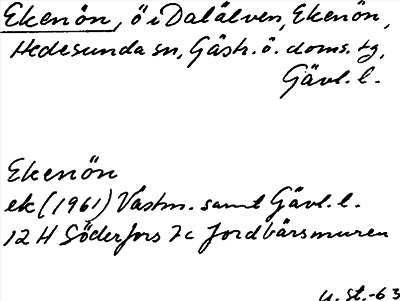 Ekenön, ö i Dalälven, Ekenön,
Hedesunda sn, Gästr. ö. doms. tg,
Gävl. l.
Ekenön
ek (1961) Västm. samt Gävl. l.
12 H Söderfors 7c Jordbärsmuren
U. St. -63